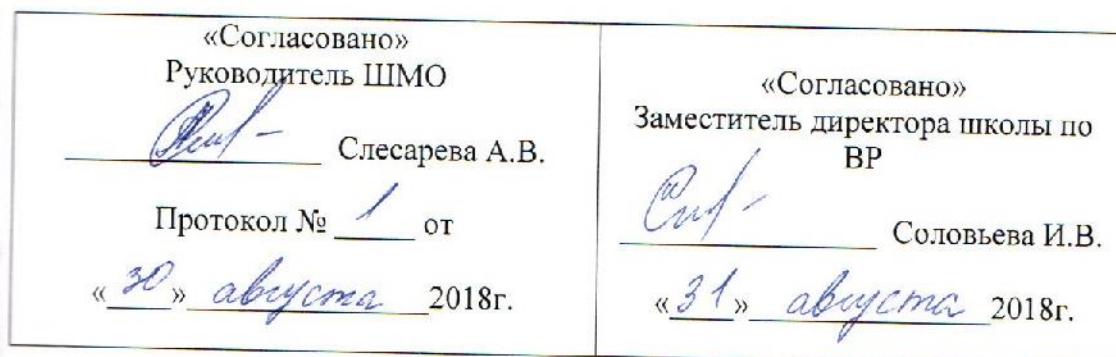 «Согласовано»
Руководитель ШМО
Слесарева А.В.
Протокол № 1 от
«30» августа 2018г.
«Согласовано»
Заместитель директора школы по
ВР
Соловьева И.В.
«31» августа 2018г.